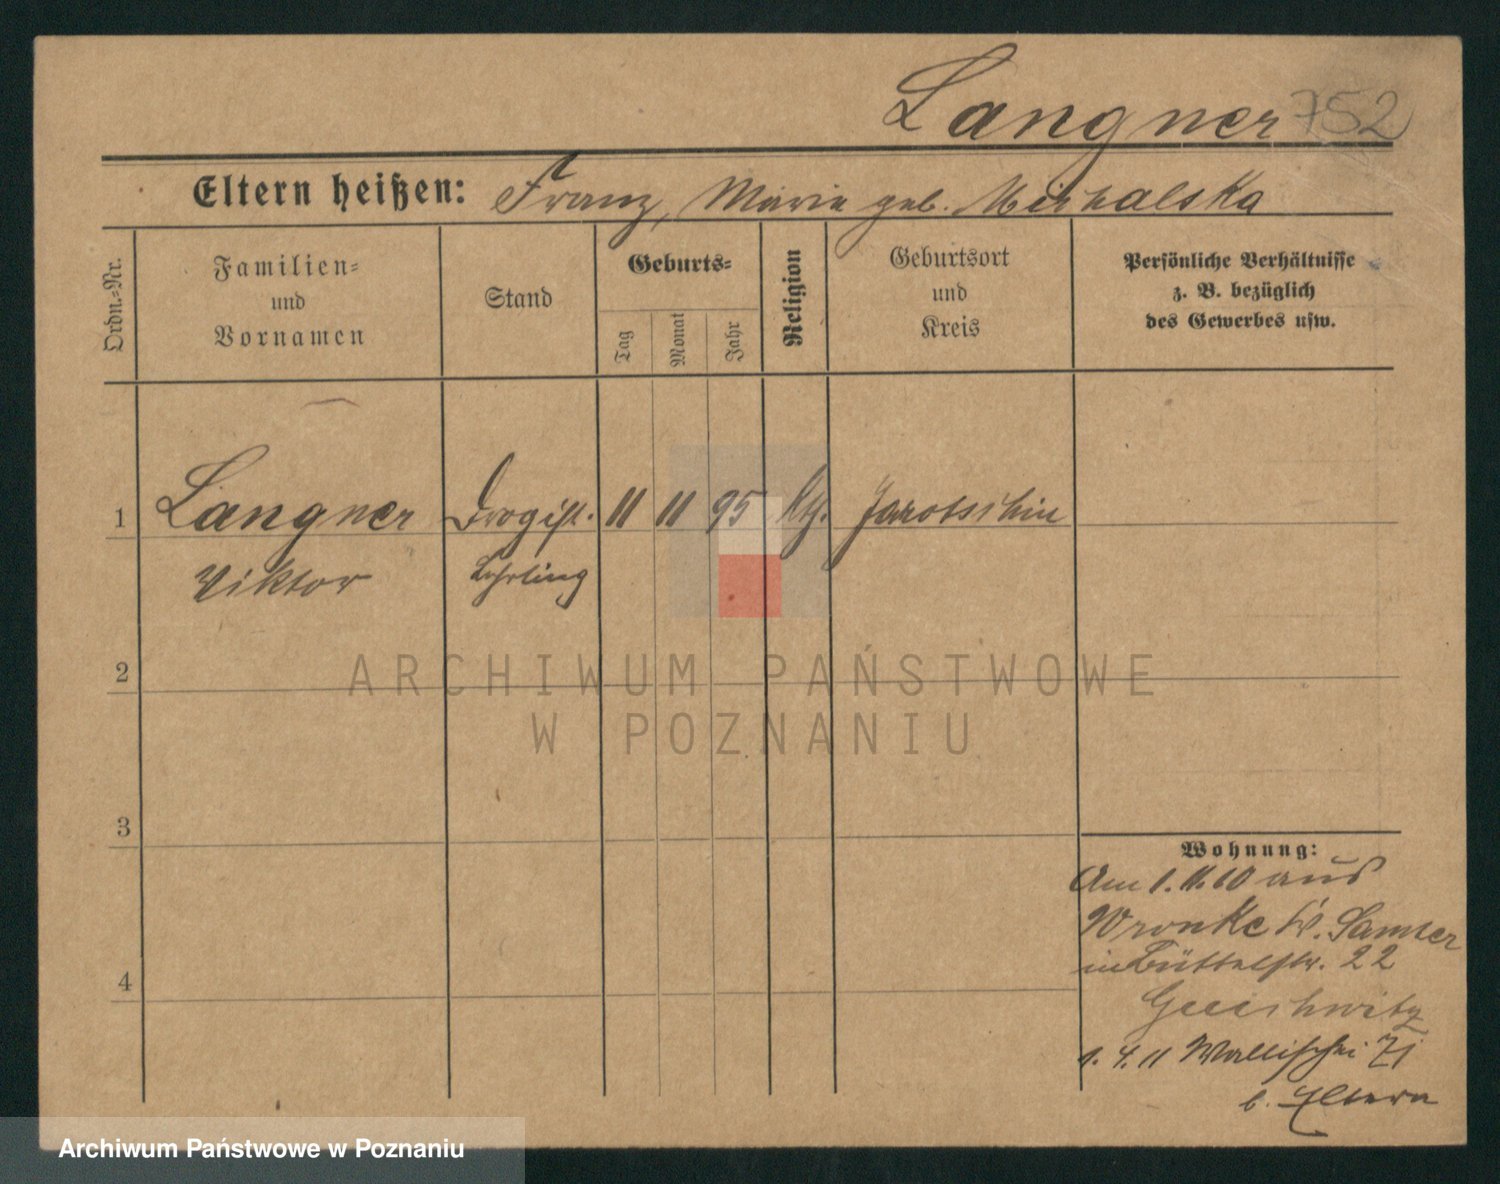 Langner 752
Eltern heißen: Franz, Marie geb. Michalska
Ordn.=Nr.
Familien=
und
Vornamen
Stand
Geburts=
Tag
Monat
Jahr
Religion
Geburtsort
und
Kreis
Persönliche Verhältnisse
z. B. bezüglich
des Gewerbes usw.
1 Langner Drogist. 11 11 95 kth. Jarotschin
Viktor Lehrling
2
3
4
Wohnung:
Am 1.11.10 aus
Wronke Kr. Samter
in Büttelstr. 22
1. 4. 11 Wallischei 71
b. Eltern
ARCHIWUM PAŃSTWOWE
W POZNANIU
Archiwum Państwowe w Poznaniu